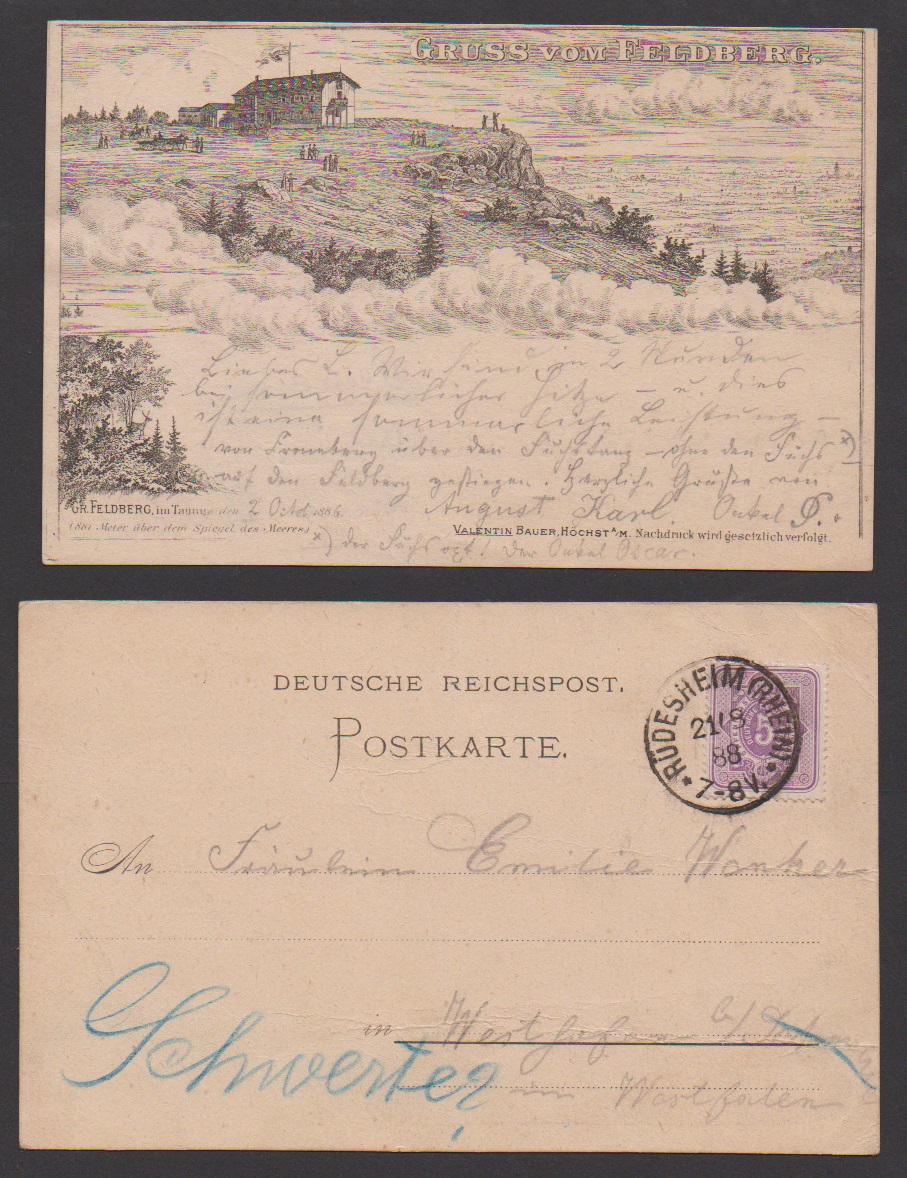 GRUSS VOM FELDBERG.
Liebes L. Wir sind in 2 Stunden
bei sommerlicher Hitze – u. dies
ist eine sommerliche Leistung –
von Croneberg über den Fuchstanz – ohne den Fuchs x)
auf den Feldberg gestiegen. Herzliche Grüsse von
August Karl. Onkel O.
GR. FELDBERG, im Taunus den 2 Octob 1886.
(881 Meter über dem Spiegel des Meeres)
VALENTIN BAUER, HÖCHST A/M. Nachdruck wird gesetzlich verfolgt.
x) der Fuchs Der Onkel Oscar.
DEUTSCHE REICHSPOST.
POSTKARTE.
RÜDESHEIM (RHEIN)
21 8
88
7-8V.
5
An Fräulein Emilie
in Westhofen b/
Schwerte
in Westfalen